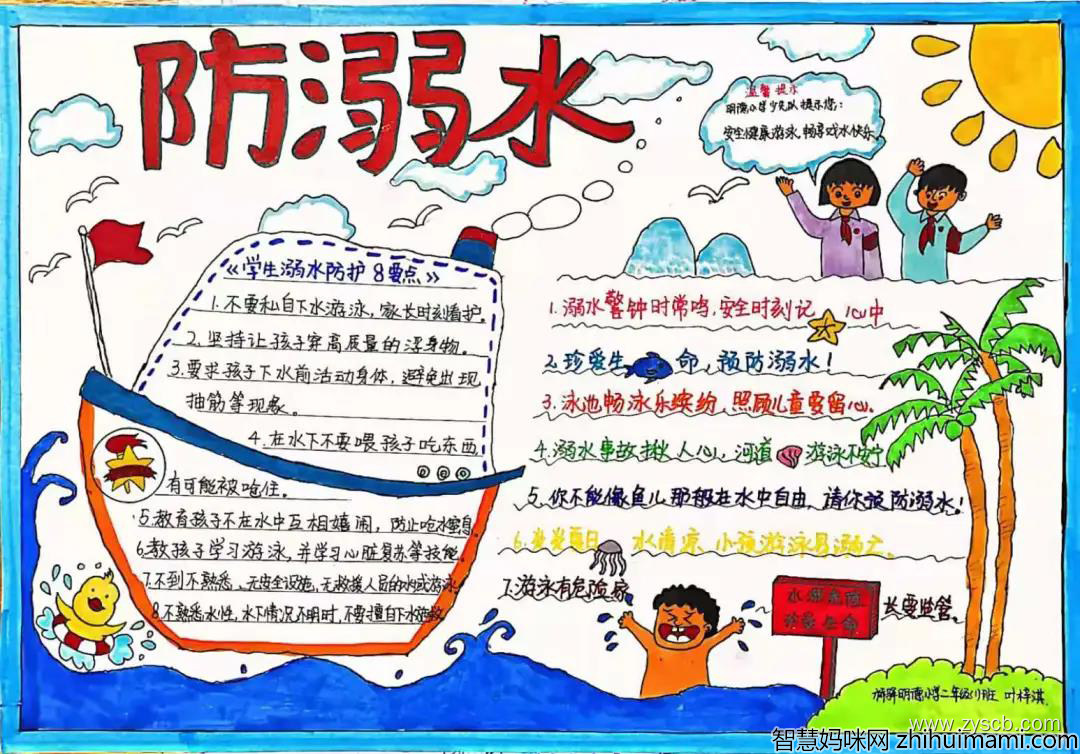 防溺水
温馨提示
明德小学少先队提示您:
安全健康游泳,畅享戏水快乐。
《学生溺水防护8要点》
1.不要私自下水游泳,家长时刻看护。
2.坚持让孩子穿高质量的浮身物。
3.要求孩子下水前活动身体,避免出现
抽筋等现象。
4.在水下不要喂孩子吃东西,
有可能被呛住。
5.教育孩子不在水中互相嬉闹,防止呛水窒息。
6.教孩子学习游泳,并学习心脏复苏等技能。
7.不到不熟悉、无安全设施、无救援人员的水域游泳
8.不熟悉水性,水下情况不明时,不要擅自下水施救
1.溺水警钟时常鸣,安全时刻记心中
2.珍爱生命,预防溺水!
3.泳池畅泳乐缤纷,照顾儿童要留心。
4.溺水事故揪人心,河道游泳不安宁
5.你不能像鱼儿那般在水中自由,请你预防溺水!
6.炎炎夏日,水清凉,小孩游泳易溺亡。
7.游泳有危险,家长要监管。
水深危险
珍爱生命
明德小学二年级(1)班 叶梓淇
www.zyscb.com
智慧妈咪网 zhihuimami.com